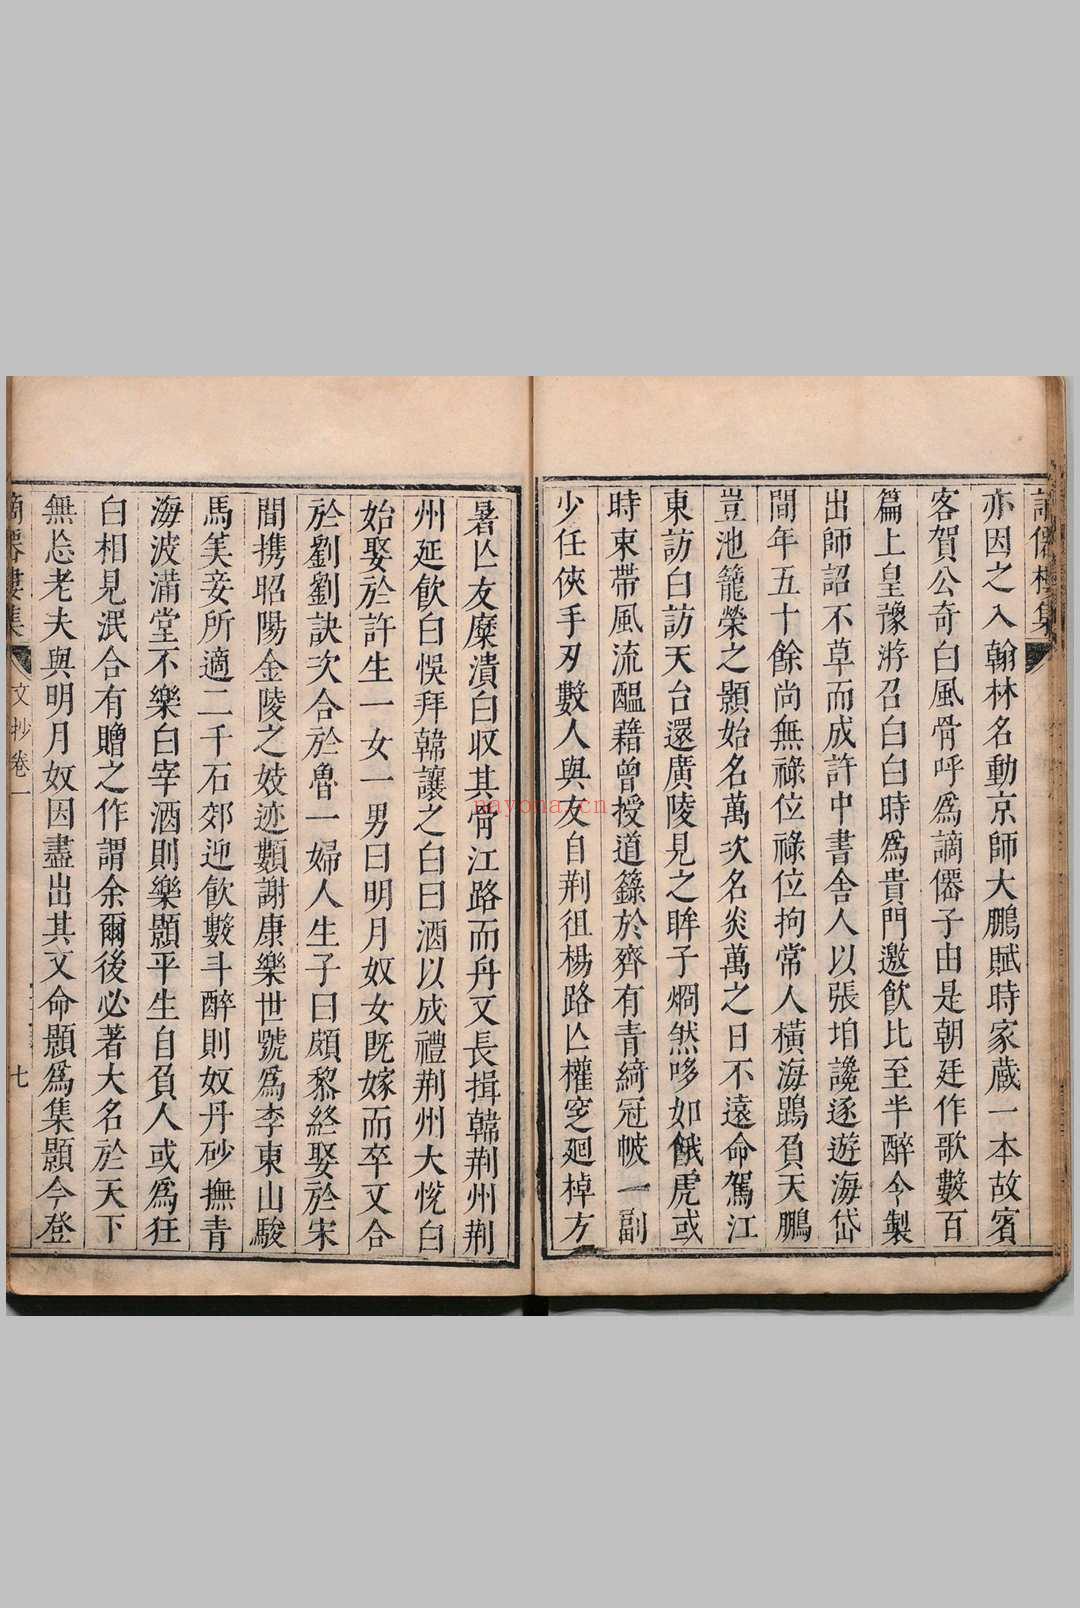 謫僊樓集
亦因之入翰林名動京師大鵬賦時家藏一本故賓
客賀公奇白風骨呼爲謫僊子由是朝廷作歌數百
篇上皇豫游召白白時爲貴門邀飲比至半醉令製
出師詔不草而成許中書舍人以張垍讒逐遊海岱
間年五十餘尚無祿位祿位拘常人橫海鵾負天鵬
豈池籠榮之顥始名萬次名炎萬之日不遠命駕江
東訪白訪天台還廣陵見之眸子烱然哆如餓虎或
時束帶風流醞藉曾授道籙於齊有青綺冠帔一副
少任俠手刃數人與友自荆徂楊路亾權窆廻棹方
暑亾友糜潰白収其骨江路而舟又長揖韓荆州荆
州延飲白悞拜韓讓之白曰酒以成禮荆州大悅白
始娶於許生一女一男曰明月奴女既嫁而卒又合
於劉劉訣次合於魯一婦人生子曰頗黎終娶於宋
間携昭陽金陵之妓迹類謝康樂世號爲李東山駿
馬美妾所適二千石郊迎飲數斗醉則奴丹砂撫青
海波滿堂不樂白宰酒則樂顥平生自負人或爲狂
白相見泯合有贈之作謂余爾後必著大名於天下
無忘老夫與明月奴因盡出其文命顥爲集顥今登
謫僊樓集
文抄卷一
七
nayona.cn